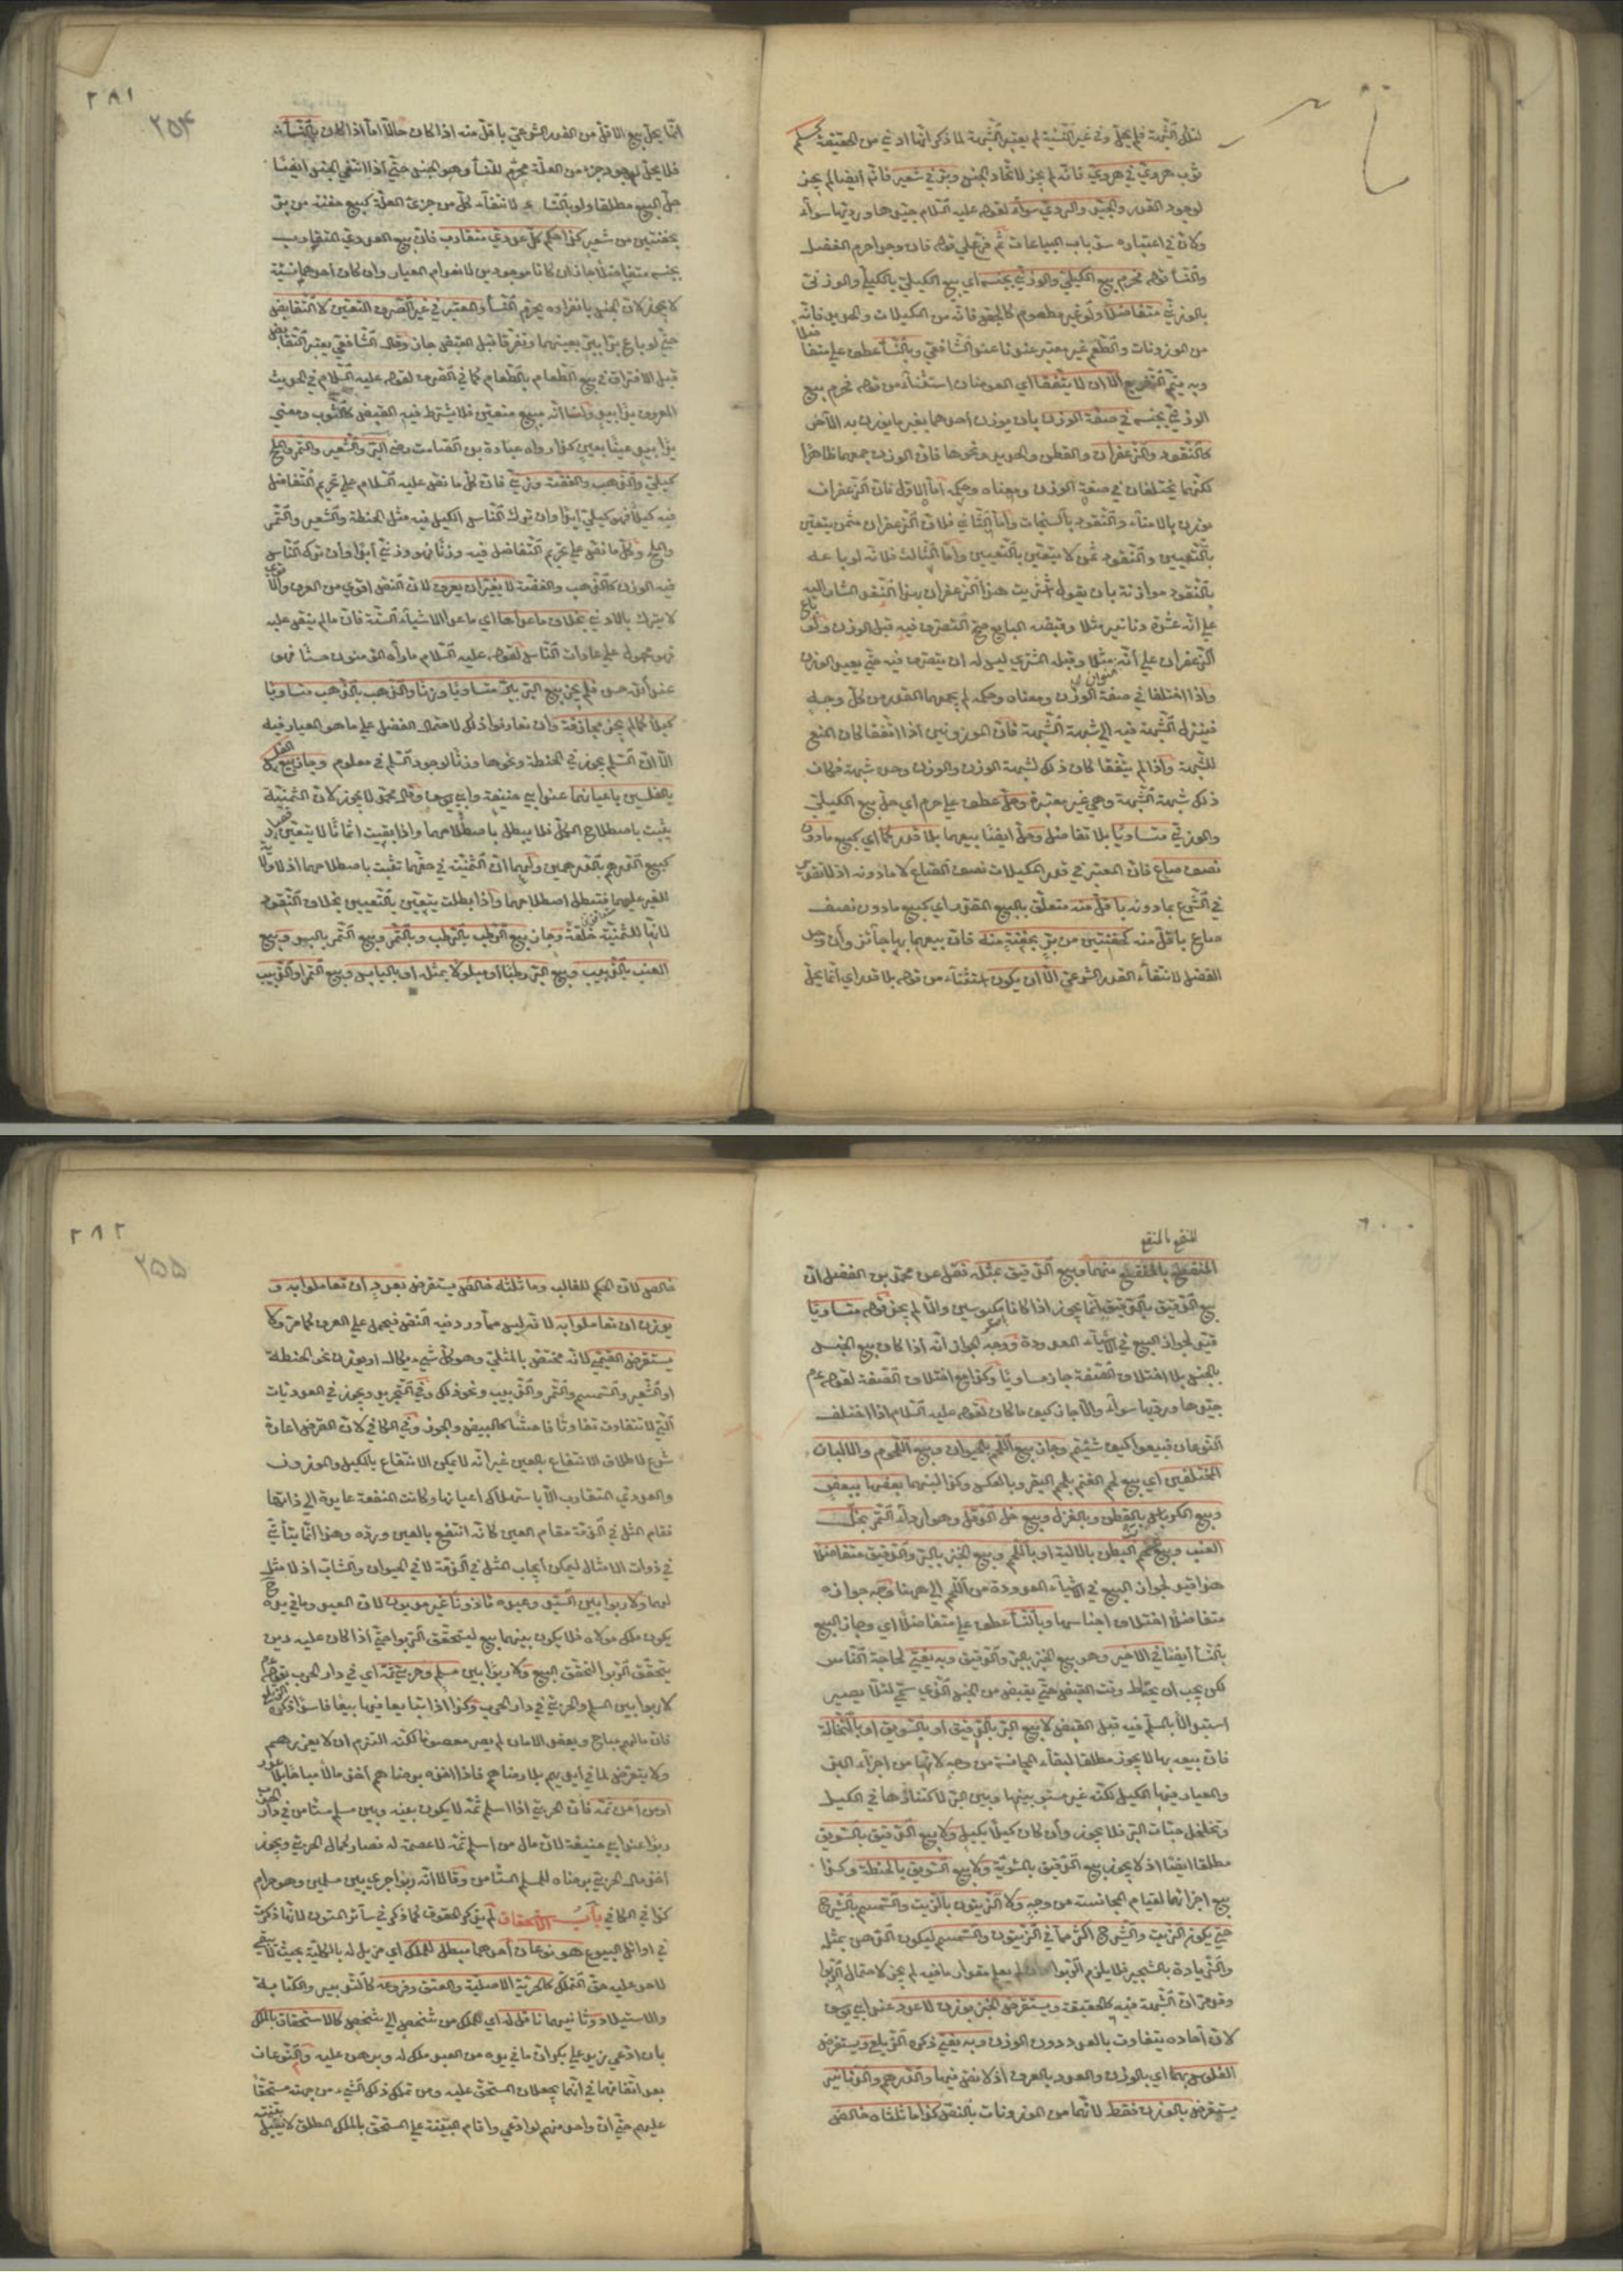 لتلك الشبهة فلم يحل وفي غير النسيئة لم يعتبر الشبهة لما ذكر انها ادنى من الحقيقة كسلم
ثوب هروي في هروي فانه لم يجز لاتحاد الجنس وبر في شعير فانه ايضا لم يجز
لوجود القدر والجيد والردي سواء لقوله عليه السلام جيدها ورديها سواء
ولان في اعتباره سد باب البياعات ثم فرع على قوله فان وجدا حرم الفضل
والنسأ قوله فحرم بيع الكيلي والوزني بجنسه اي بيع الكيلي بالكيلي والوزني
بالوزني متفاضلا ولو غير مطعوم كالجص فانه من المكيلات والحديد فانه
من الموزونات والطعم غير معتبر عندنا عند الشافعي وبالنسأ عطف على متفا
ضلا
وبه يتم التفريع الا ان لا يتفقا اي العوضان استثناء من قوله فحرم بيع
الوزني بجنسه في صفة الوزن بان يوزن احدهما بغير ما يوزن به الآخر
كالنقود والزعفران والقطن والحديد ونحوها فان الوزن جمعهما ظاهرا
لكنهما يختلفان في صفة الوزن ومعناه وحكمه اما الاول فان الزعفران
يوزن بالامناء والنقود بالسنجات واما الثاني فلان الزعفران مثمن يتعين
بالتعيين والنقود ثمن لا يتعين بالتعيين واما الثالث فلانه لو باعه
بالنقود موازنة بان يقول اشتريت هذا الزعفران بهذا النقد المشار اليه
على انه عشرة دنانير مثلا وقبضه البايع صح التصرف فيه قبل الوزن ولو
باع
الزعفران على انه منوان مثلا وقبله المشتري ليس له ان يتصرف فيه حتى يعيد الوزن
واذا اختلفا في صفة الوزن ومعناه وحكمه لم يجمعهما القدر من كل وجه
فينزل الشبهة فيه الى شبهة الشبهة فان الموزونين اذا اتفقا كان المنع
للشبهة واذا لم يتفقا كان ذلك لشبهة الوزن والوزن وحده شبهة فكان
ذلك شبهة الشبهة وهي غير معتبرة وحل عطف على حرم اي حل بيع الكيلي
والوزني متساويا بلا تفاضل وحل ايضا بيعهما بلا قدر كما اي كبيع ما دون
نصف صاع فان المعتبر في قدر المكيلات نصف الصاع لا ما دونه اذ لا تقدير
في الشرع بما دونه باقل منه متعلق بالبيع المقدر اي كبيع ما دون نصف
صاع باقل منه كحفنتين من بر بحفنة منه فان بيعهما بها جائز وان وجد
الفضل لانتفاء القدر الشرعي الا ان يكون استثناء من قوله بلا قدر اي انما يحل
٢٨١
٢٥٤
انما يحل بيع الاقل من القدر الشرعي باقل منه اذا كان حالا اما اذا كان بالنسأ
فلا يحل لوجود جزء من العلة محرم للنسأ وهو الجنس حتى اذا انتفى الجنس ايضا
حل البيع مطلقا ولو بالنساء لانتفاء كل من جزئي العلة كبيع حفنة من بر
بحفنتين من شعير كذا حكم كل عددي متقارب فان بيع العددي المتقارب
بجنسه متفاضلا جاز ان كانا موجودين لانعدام المعيار وان كان احدهما نسيئة
لا يجوز لان الجنس بانفراده يحرم النسأ والمعتبر في غير الصرف التعيين لا التقابض
حتى لو باع برا ببر بعينهما وتفرقا قبل القبض جاز وقال الشافعي يعتبر التقابض
قبل الافتراق في بيع الطعام بالطعام كما في الصرف لقوله عليه السلام في الحديث
المعروف يدا بيد ولنا انه مبيع متعين فلا يشترط فيه القبض كالثوب ومعنى
يدا بيد عينا بعين كذا رواه عبادة بن الصامت رضه البر والشعير والتمر والملح
كيلي والذهب والفضة وزني فان كل ما نص عليه السلام على تحريم التفاضل
فيه كيلا فهو كيلي ابدا وان ترك الناس الكيل فيه مثل الحنطة والشعير والتمر
والملح وكل ما نص على تحريم التفاضل فيه وزنا فهو وزني ابدا وان ترك الناس
فيه الوزن كالذهب والفضة لا يغيران بعرف لان النص اقوى من العرف والاقوى
لا يترك بالادنى بخلاف ما عداها اي ما عدا الاشياء الستة فان ما لم ينص عليه
فهو محمول على عادات الناس لقوله عليه السلام ما رآه المؤمنون حسنا فهو
عند الله حسن فلم يجز بيع البر بالبر متساويا وزنا والذهب بالذهب متساويا
كيلا كما لم يجز مجازفة وان تعارفوا ذلك لاحتمال الفضل على ما هو المعيار فيه
الا ان السلم يجوز في الحنطة ونحوها وزنا لوجود السلم في معلوم وجاز بيع الفلس
بالفلسين باعيانهما عند ابي حنيفة وابي يوسف وقال محمد لا يجوز لان الثمنية
يثبت باصطلاح الكل فلا يبطل باصطلاحهما واذا بقيت اثمانا لا يتعين فصار
كبيع الدرهم بالدرهمين ولهما ان الثمنية في حقهما تثبت باصطلاحهما اذ لا ولاية
للغير عليهما فتبطل اصطلاحهما واذا بطلت يتعين بالتعيين بخلاف النقود
لانها للثمنية خلقة وجاز بيع الرطب بالرطب وبالتمر وبيع التمر بالبسر وبيع
العنب بالزبيب وبيع البر رطبا او مبلولا بمثله او باليابس وبيع التمر او الزبيب
المنقع بالمنقع
المنقع بالمنقع منهما وبيع الدقيق بمثله نقل عن محمد بن الفضل ان
بيع الدقيق بالدقيق انما يجوز اذا كانا مكبوسين والا لم يجز قوله متساويا
قيد لجواز البيع في الاشياء المعدودة ووجه الجواز انه اذا كان بيع الجنس
بالجنس بلا اختلاف الصفة جاز متساويا وكذا مع اختلاف الصفة لقوله عم
جيدها ورديها سواء والا جاز كيف ما كان لقوله عليه السلام اذا اختلف
النوعان فبيعوا كيف شئتم وجاز بيع اللحم بالحيوان وبيع اللحوم والالبان
المختلفين اي بيع لحم الغنم بلحم البقر وبالعكس وكذا لبنهما بعضها ببعض
وبيع الكرباس بالقطن وبالغزل وبيع خل الدقل وهو اردأ التمر بخل
العنب وبيع شحم البطن بالالية او باللحم وبيع الخبز بالبر والدقيق متفاضلا
هذا قيد لجواز البيع في الاشياء المعدودة من اللحم الى ههنا وجه جوازه
متفاضلا اختلاف اجناسها وبالنسأ عطف على متفاضلا اي وجاز البيع
بالنسأ ايضا في الاخير وهو بيع الخبز بالبر والدقيق وبه يفتى لحاجة الناس
لكن يجب ان يحتاط وقت القبض حتى يقبض من الجنس الذي سمي لئلا يصير
استبدالا بالمسلم فيه قبل القبض لا بيع البر بالدقيق او بالسويق او بالنخالة
فان بيعه بها لا يجوز مطلقا لبقاء المجانسة من وجه لانها من اجزاء البر
والمعيار فيها الكيل لكنه غير مسو بينها وبين البر لاكتنازها في الكيل
وتخلخل حبات البر فلا يجوز وان كان كيلا بكيل ولا بيع الدقيق بالسويق
مطلقا ايضا اذ لا يجوز بيع الدقيق بالمقلية ولا بيع السويق بالحنطة وكذا
بيع اجزائهما لقيام المجانسة من وجه ولا الزيتون بالزيت والسمسم بالشيرج
حتى يكون الزيت والشيرج اكثر مما في الزيتون والسمسم ليكون الدهن بمثله
والزيادة بالثجير فلا يلزم الربوا لم يعلم مقدار ما فيه لم يجز لاحتمال الربوا
وقد مر ان الشبهة فيه كالحقيقة ويستقرض الخبز بوزن لا عدد عند ابي يوسف
لان آحاده يتفاوت بالعدد دون الوزن وبه يفتى ذكره الزيلعي ويستقرض
الفلوس بهما اي بالوزن والعدد بالعرف اذ لا نص فيها والدرهم والدنانير
يستقرض بالوزن فقط لانهما من الموزونات بالنص كذا ما ثلثاه خالص
٢٨٢
٢٥٥
خالص لان الحكم للغالب وما ثلثه خالص يستقرض بعدد ان تعاملوا به و
يوزن ان تعاملوا به لانه ليس مما ورد فيه النص فيحمل على العرف كما مر ولا
يستقرض القيمي لانه مختص بالمثلي وهو كل شيء يكال او يوزن نحو الحنطة
او الشعير والسمسم والتمر والزبيب ونحو ذلك وفي التجريد ويجوز في العدديات
التي لا تتفاوت تفاوتا فاحشا كالبيض والجوز وفي الكافي لان القرض اعارة
شرع لاطلاق الانتفاع بالعين غير انه لا يمكن الانتفاع بالكيل والموزون
والعددي المتقارب الا باستهلاك اعيانها وكانت المنفعة عايدة الى ذاتها
فقام المثل في الذمة مقام العين كانه انتفع بالعين ورده وهذا انما يتأتى
في ذوات الامثال ليمكن ايجاب المثل في الذمة لا في الحيوان والثياب اذ لا مثل
لهما ولا ربوا بين السيد وعبده مأذونا غير مديون لان العبد وما في يده
يكون ملك مولاه فلا يكون بينهما بيع ليتحقق الربوا حتى اذا كان عليه دين
يتحقق الربوا لتحقق البيع ولا ربوا بين مسلم وحربي ثمه اي في دار الحرب لقوله عم
لا ربوا بين المسلم والحربي في دار الحرب وكذا اذا تبايعا فيها بيعا فاسدا ذكره الزيلعي
فان مالهم مباح وبعقد الامان لم يصر معصوما لكنه التزم ان لا يغدرهم
ولا يتعرض لما في ايديهم بلا رضاهم فاذا اخذه برضاهم اخذ مالا مباحا بلا عذر
او من آمن ثمه فان الحربي اذا اسلم ثمه لا يكون بينه وبين مسلم مستأمن في دار الحرب
ربوا عند ابي حنيفة لان مال من اسلم ثمه لا عصمة له فصار كمال الحربي ويجوز
اخذ مال الحربي برضاه للمسلم المستأمن وقالا انه ربوا جرى بين مسلمين وهو حرام
كذا في الكافي باب الاستحقاق لم يذكر الحقوق كما ذكر في سائر المتون لانها ذكرت
في اوائل البيوع هو نوعان احدهما مبطل للملك اي مزيل له بالكلية بحيث لا يبقى
لاحد عليه حق التملك كالحرية الاصلية والعتق وفروعه كالتدبير والكتابة
والاستيلاد وثانيهما ناقل له اي للملك من شخص الى شخص كالاستحقاق بالملك
بان ادعى زيد على بكر ان ما في يده من العبد ملك له وبرهن عليه والنوعان
بعد اتفاقهما في انهما يجعلان المستحق عليه ومن تملك ذلك الشيء من جهته مستحقا
عليهم حتى ان واحد منهم لو ادعى واقام البينة على المستحق بالملك المطلق لا يقبل بينته